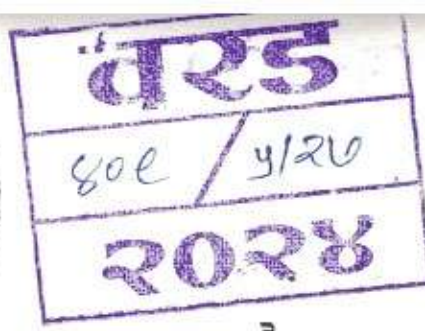 वरड
४०९ / ५/२७
२०२४